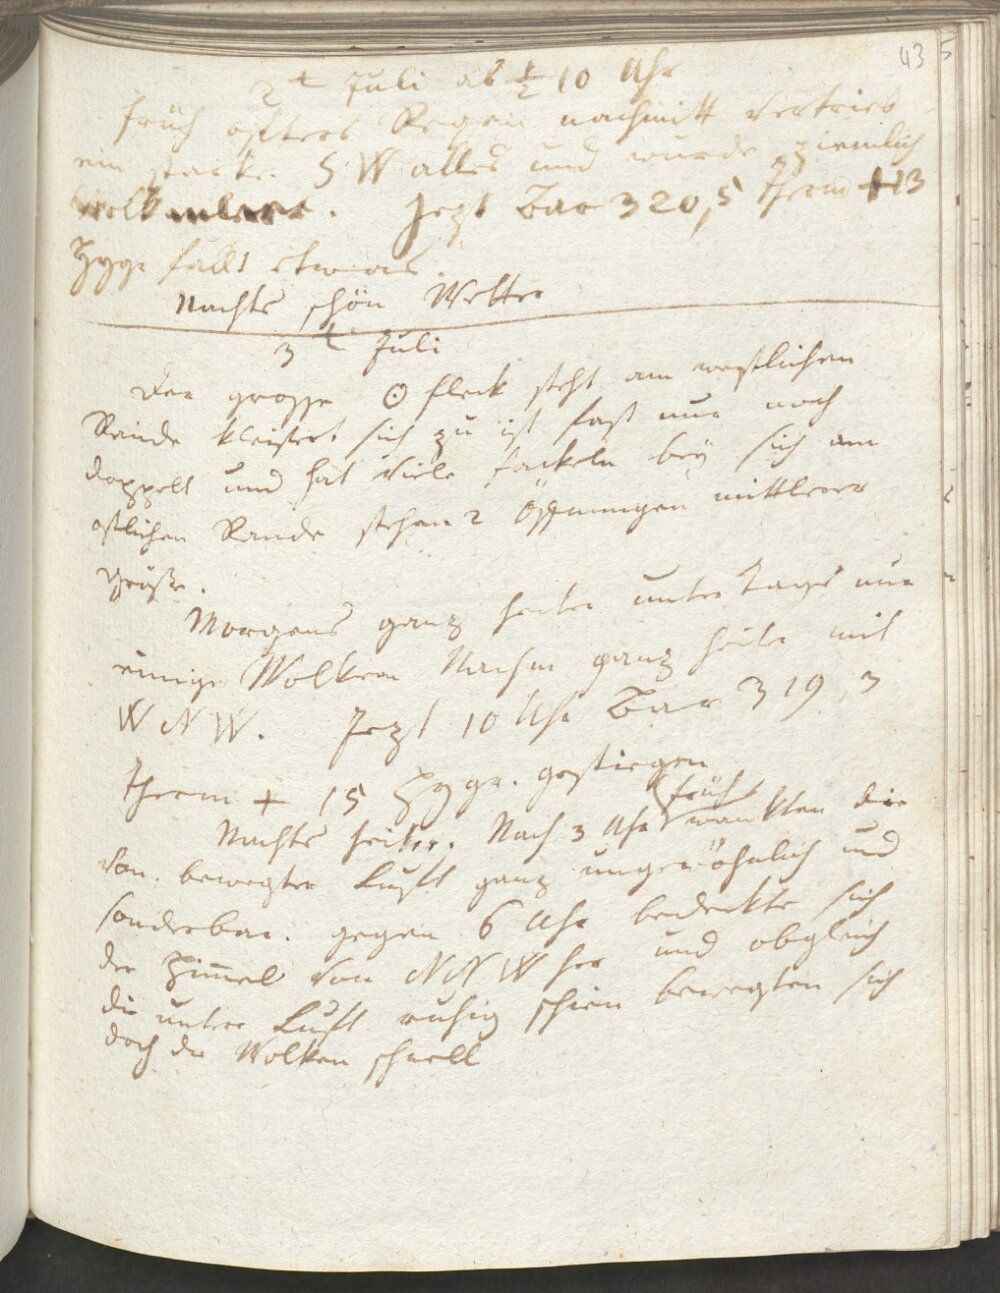 43
5
2t Juli ab ½ 10 Uhr
früh öfters Regen nachmitt vertrieb
ein starker SW alles und wurde ziemlich
wolkenleer. Jezt Bar 320,5 Therm +13
Hygr fällt etwas.
Nachts schön Wetter
3t Juli
Der grosse ☉ fleck steht am westlichen
Rande kleistert sich zu ist fast nur noch
doppelt und hat viele fackeln bey sich am
östlichen Rande stehen 2 Öffnungen mittlerer
Größe.
Morgens ganz heiter unter Tags nur
einige Wolken Nachm ganz heiter mit
WNW. Jezt 10 Uhr Bar 319,3
Therm + 15 Hygr. gestiegen
früh
Nachts heiter. Nach 3 Uhr wankten die
von bewegter Luft ganz ungewöhnlich und
sonderbar. gegen 6 Uhr bedeckte sich
der Himmel von NNW her und obgleich
die untere Luft ruhig schien bewegten sich
doch die Wolken schnell